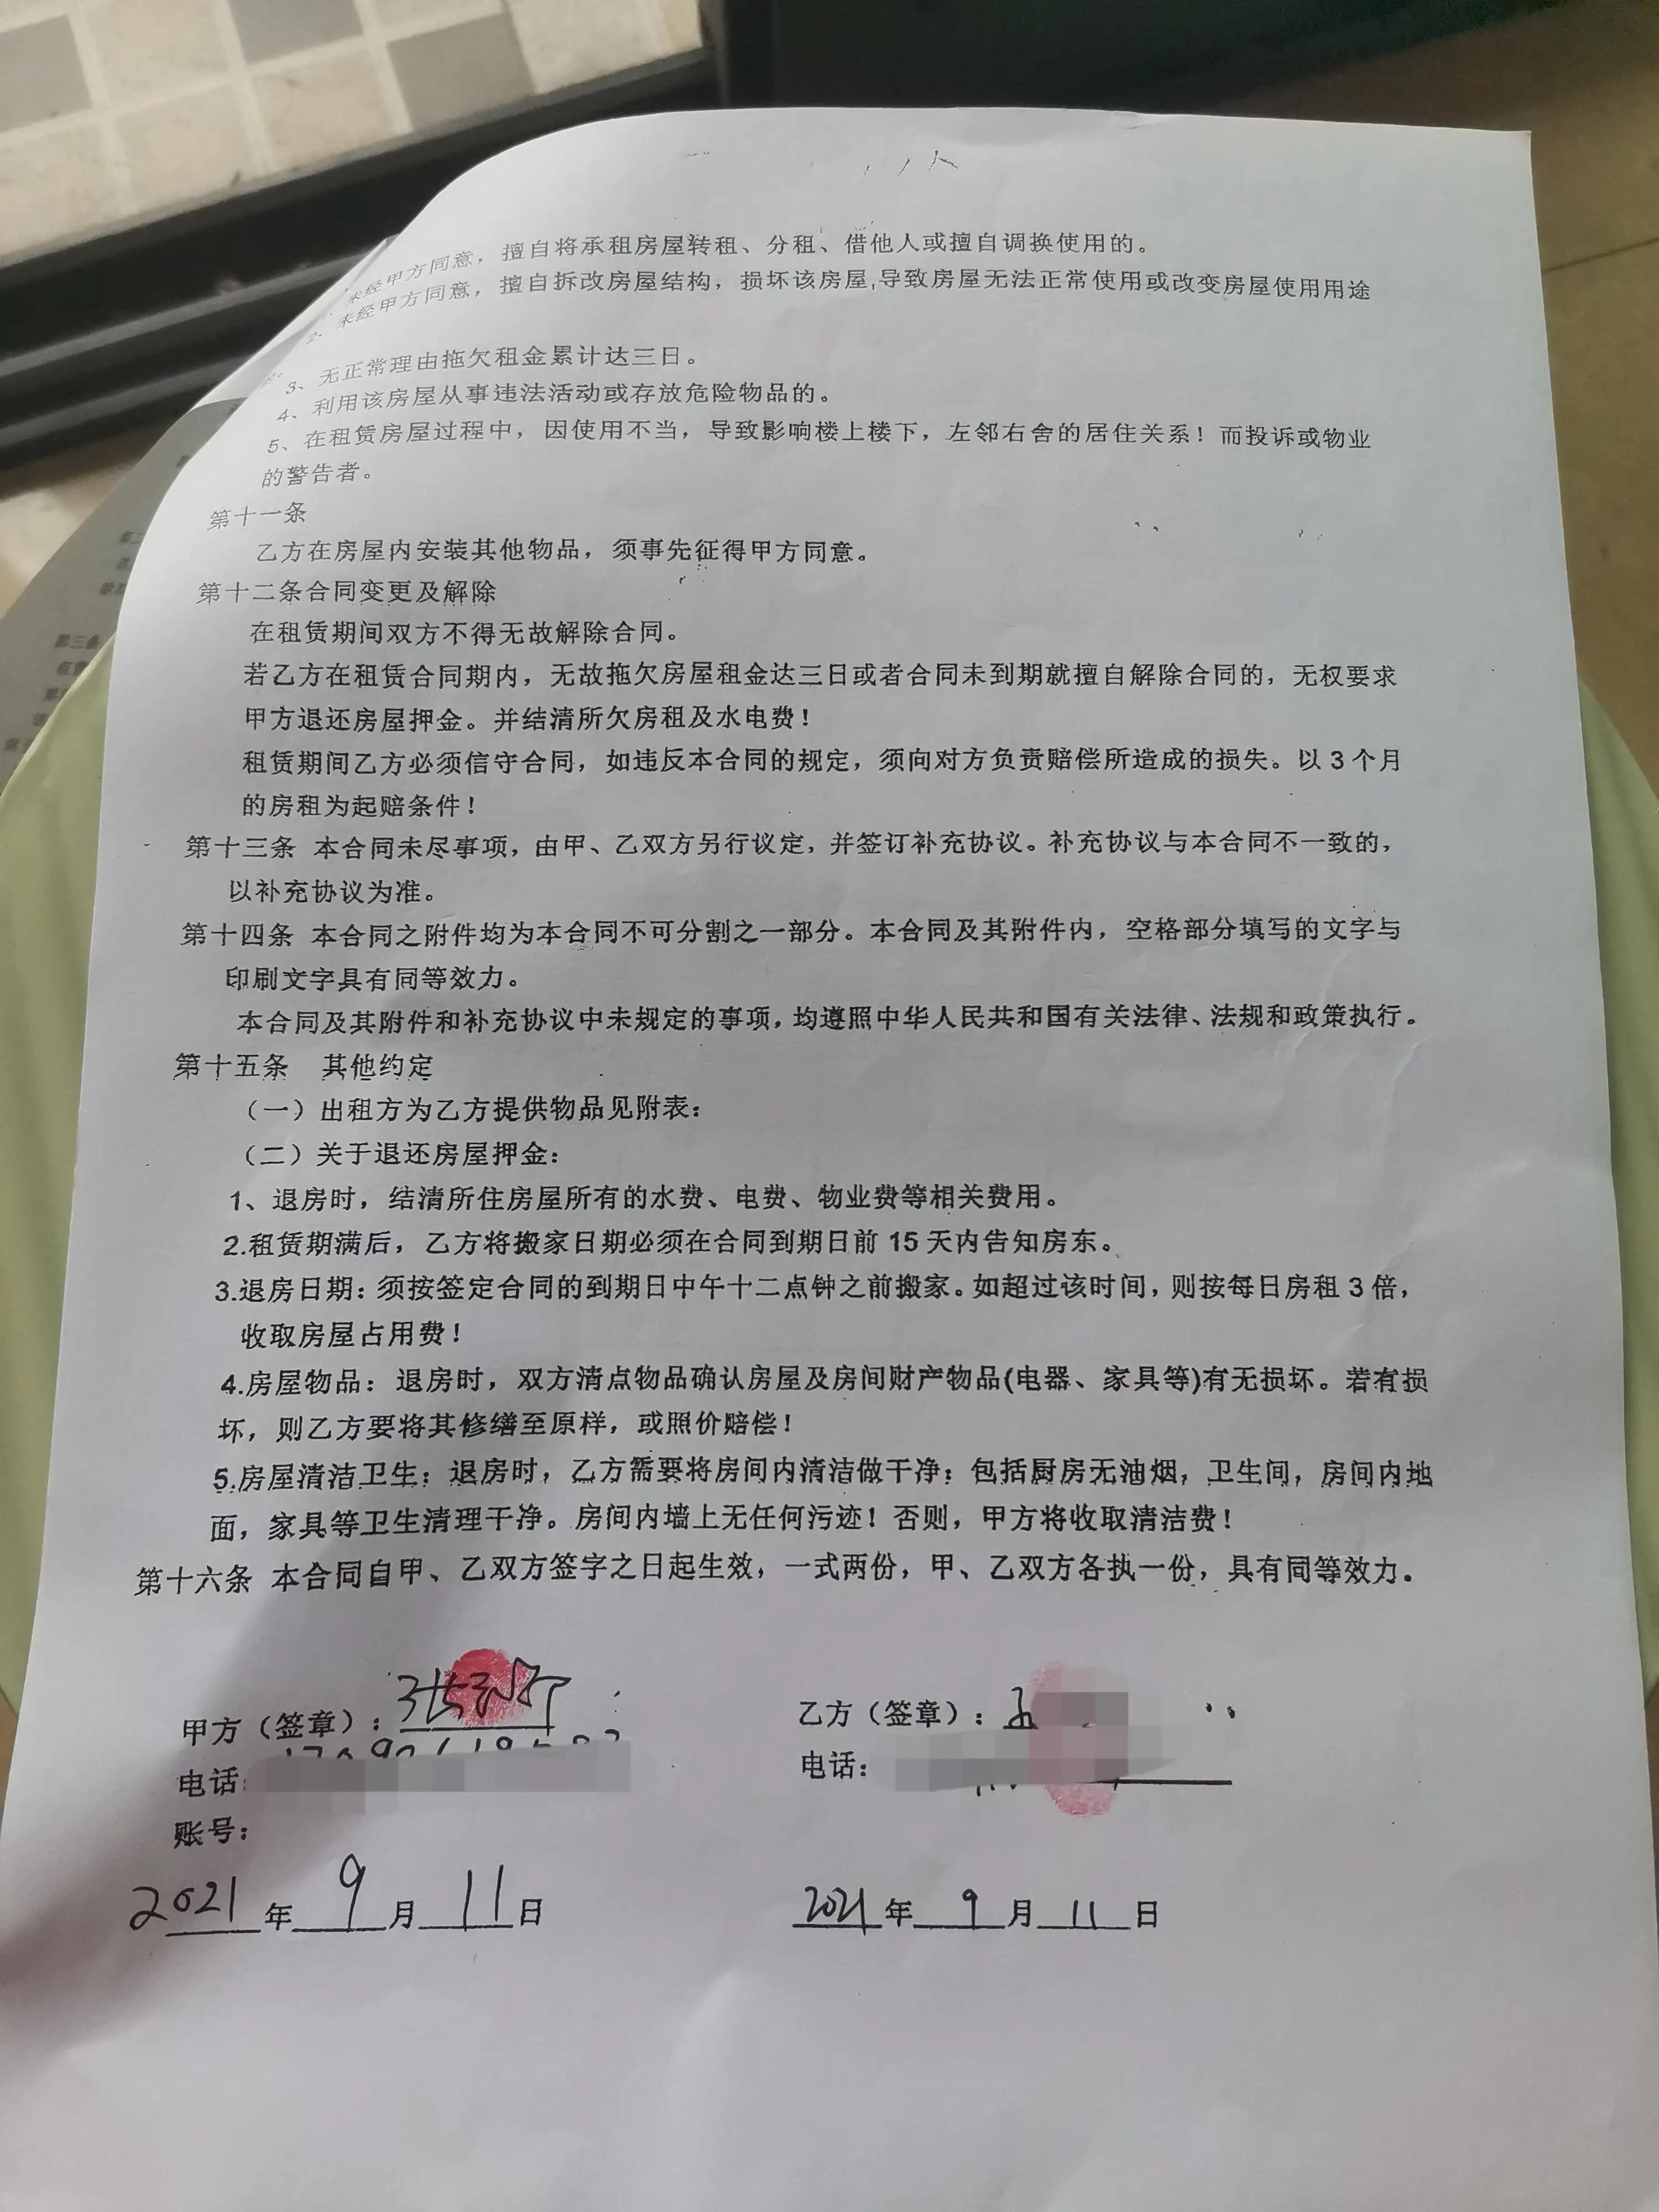 未经甲方同意，擅自将承租房屋转租、分租、借他人或擅自调换使用的。
2、未经甲方同意，擅自拆改房屋结构，损坏该房屋,导致房屋无法正常使用或改变房屋使用用途
的。
3、无正常理由拖欠租金累计达三日。
4、利用该房屋从事违法活动或存放危险物品的。
5、在租赁房屋过程中，因使用不当，导致影响楼上楼下，左邻右舍的居住关系！而投诉或物业
的警告者。
第十一条
乙方在房屋内安装其他物品，须事先征得甲方同意。
第十二条合同变更及解除
在租赁期间双方不得无故解除合同。
若乙方在租赁合同期内，无故拖欠房屋租金达三日或者合同未到期就擅自解除合同的，无权要求
甲方退还房屋押金。并结清所欠房租及水电费！
租赁期间乙方必须信守合同，如违反本合同的规定，须向对方负责赔偿所造成的损失。以3个月
的房租为起赔条件！
第十三条 本合同未尽事项，由甲、乙双方另行议定，并签订补充协议。补充协议与本合同不一致的，
以补充协议为准。
第十四条 本合同之附件均为本合同不可分割之一部分。本合同及其附件内，空格部分填写的文字与
印刷文字具有同等效力。
本合同及其附件和补充协议中未规定的事项，均遵照中华人民共和国有关法律、法规和政策执行。
第十五条 其他约定
（一）出租方为乙方提供物品见附表：
（二）关于退还房屋押金：
1、退房时，结清所住房屋所有的水费、电费、物业费等相关费用。
2.租赁期满后，乙方将搬家日期必须在合同到期日前15天内告知房东。
3.退房日期：须按签定合同的到期日中午十二点钟之前搬家。如超过该时间，则按每日房租3倍，
收取房屋占用费！
4.房屋物品：退房时，双方清点物品确认房屋及房间财产物品(电器、家具等)有无损坏。若有损
坏，则乙方要将其修缮至原样，或照价赔偿！
5.房屋清洁卫生：退房时，乙方需要将房间内清洁做干净：包括厨房无油烟，卫生间，房间内地
面，家具等卫生清理干净。房间内墙上无任何污迹！否则，甲方将收取清洁费！
第十六条 本合同自甲、乙双方签字之日起生效，一式两份，甲、乙双方各执一份，具有同等效力。
甲方（签章）： 乙方（签章）：
电话： 电话：
账号：
2021年9月11日 2021年9月11日